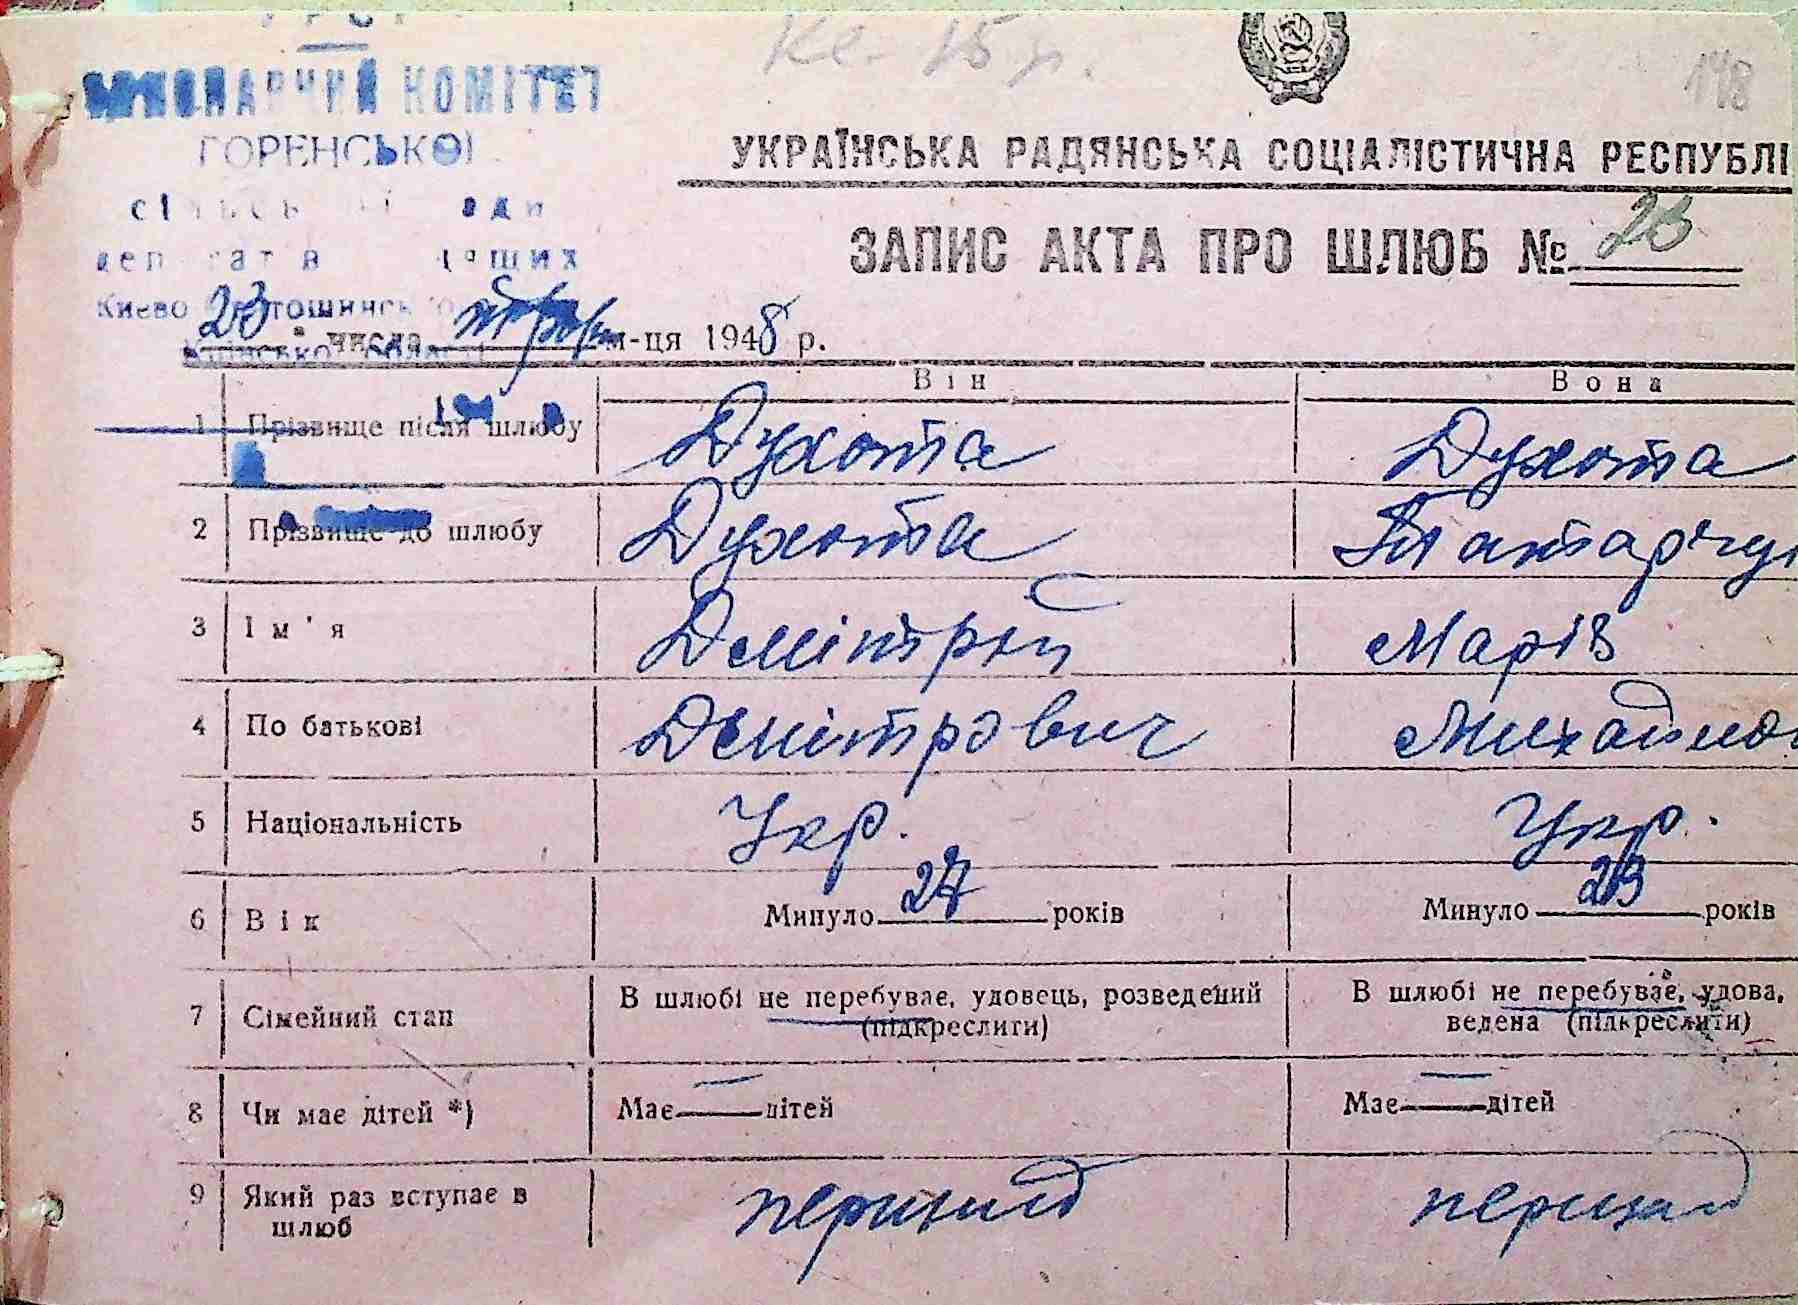 Кв. 15 р.
198
ВИКОНАВЧИЙ КОМІТЕТ
ГОРЕНСЬКОЇ
УКРАЇНСЬКА РАДЯНСЬКА СОЦІАЛІСТИЧНА РЕСПУБЛІ
ЗАПИС АКТА ПРО ШЛЮБ № 23
23 " числа м-ця 1948 р.
Він Вона
1 Прізвище після шлюбу Духота Духота
2 Прізвище до шлюбу Духота Татарчу
3 Ім'я Дмітрій Марія
4 По батькові Дмітрович Михайло
5 Національність Укр. Укр.
6 Вік Минуло 27 років Минуло 23 років
7 Сімейний стан В шлюбі не перебуває, удовець, розведений (підкреслити) В шлюбі не перебуває, удова, ведена (підкреслити)
8 Чи має дітей *) Має — дітей Має — дітей
9 Який раз вступає в шлюб перший перший